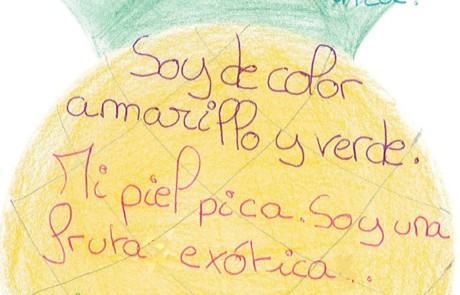 Soy de color
amarillo y verde.
Mi piel pica. Soy una
fruta exótica...